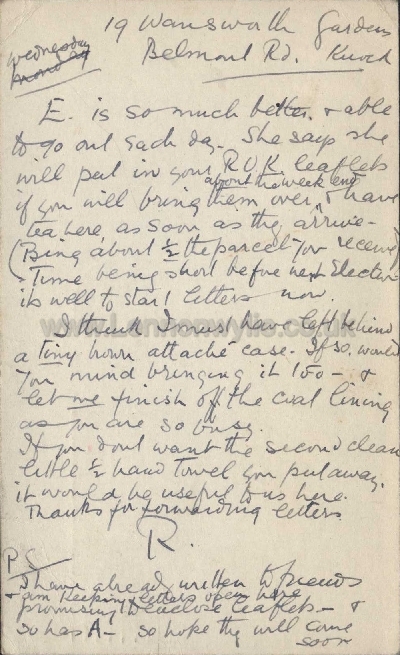 19 Wansworth Gardens
Belmont Rd. Knock
Wednesday
Monday
E. is so much better. & able
to go out each day. She says she
will put in your R.U.K. leaflets
if you will bring them over, about the week end & have
tea here, as soon as they arrive -
(Bring about ½ the parcel you receive)
Time being short before next Election
its well to start letters now.
www.Londonwylie.co.uk
I think I must have left behind
a Tiny brown attaché case. If so, would
you mind bringing it too - &
let me finish off the coat lining
as you are so busy.
If you dont want the second clean
little ½ hand towel you put away,
it would be useful to us here.
Thanks for forwarding letters
R.
P.S.
I have already written to friends
& am keeping letters open here
promising to enclose leaflets - &
so has A - so hope they will come
soon